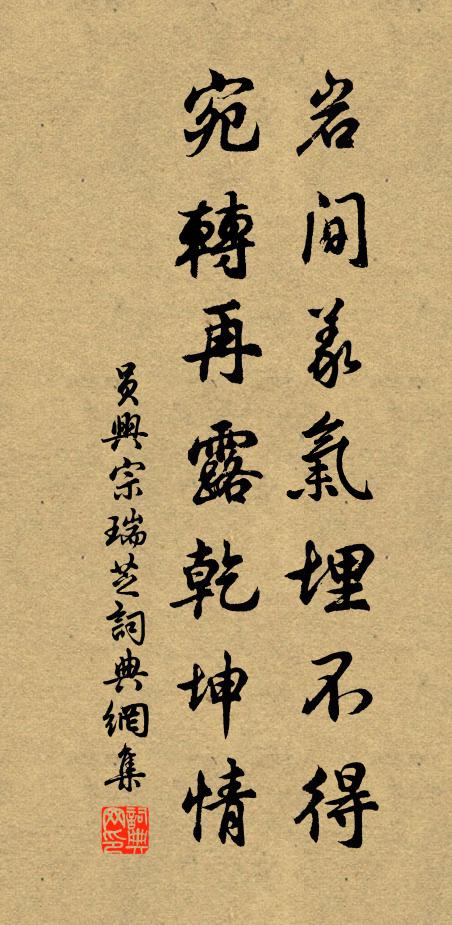 岩間義氣埋不得
宛轉再露乾坤情
員興宗瑞芝詞典網集
詞典網印